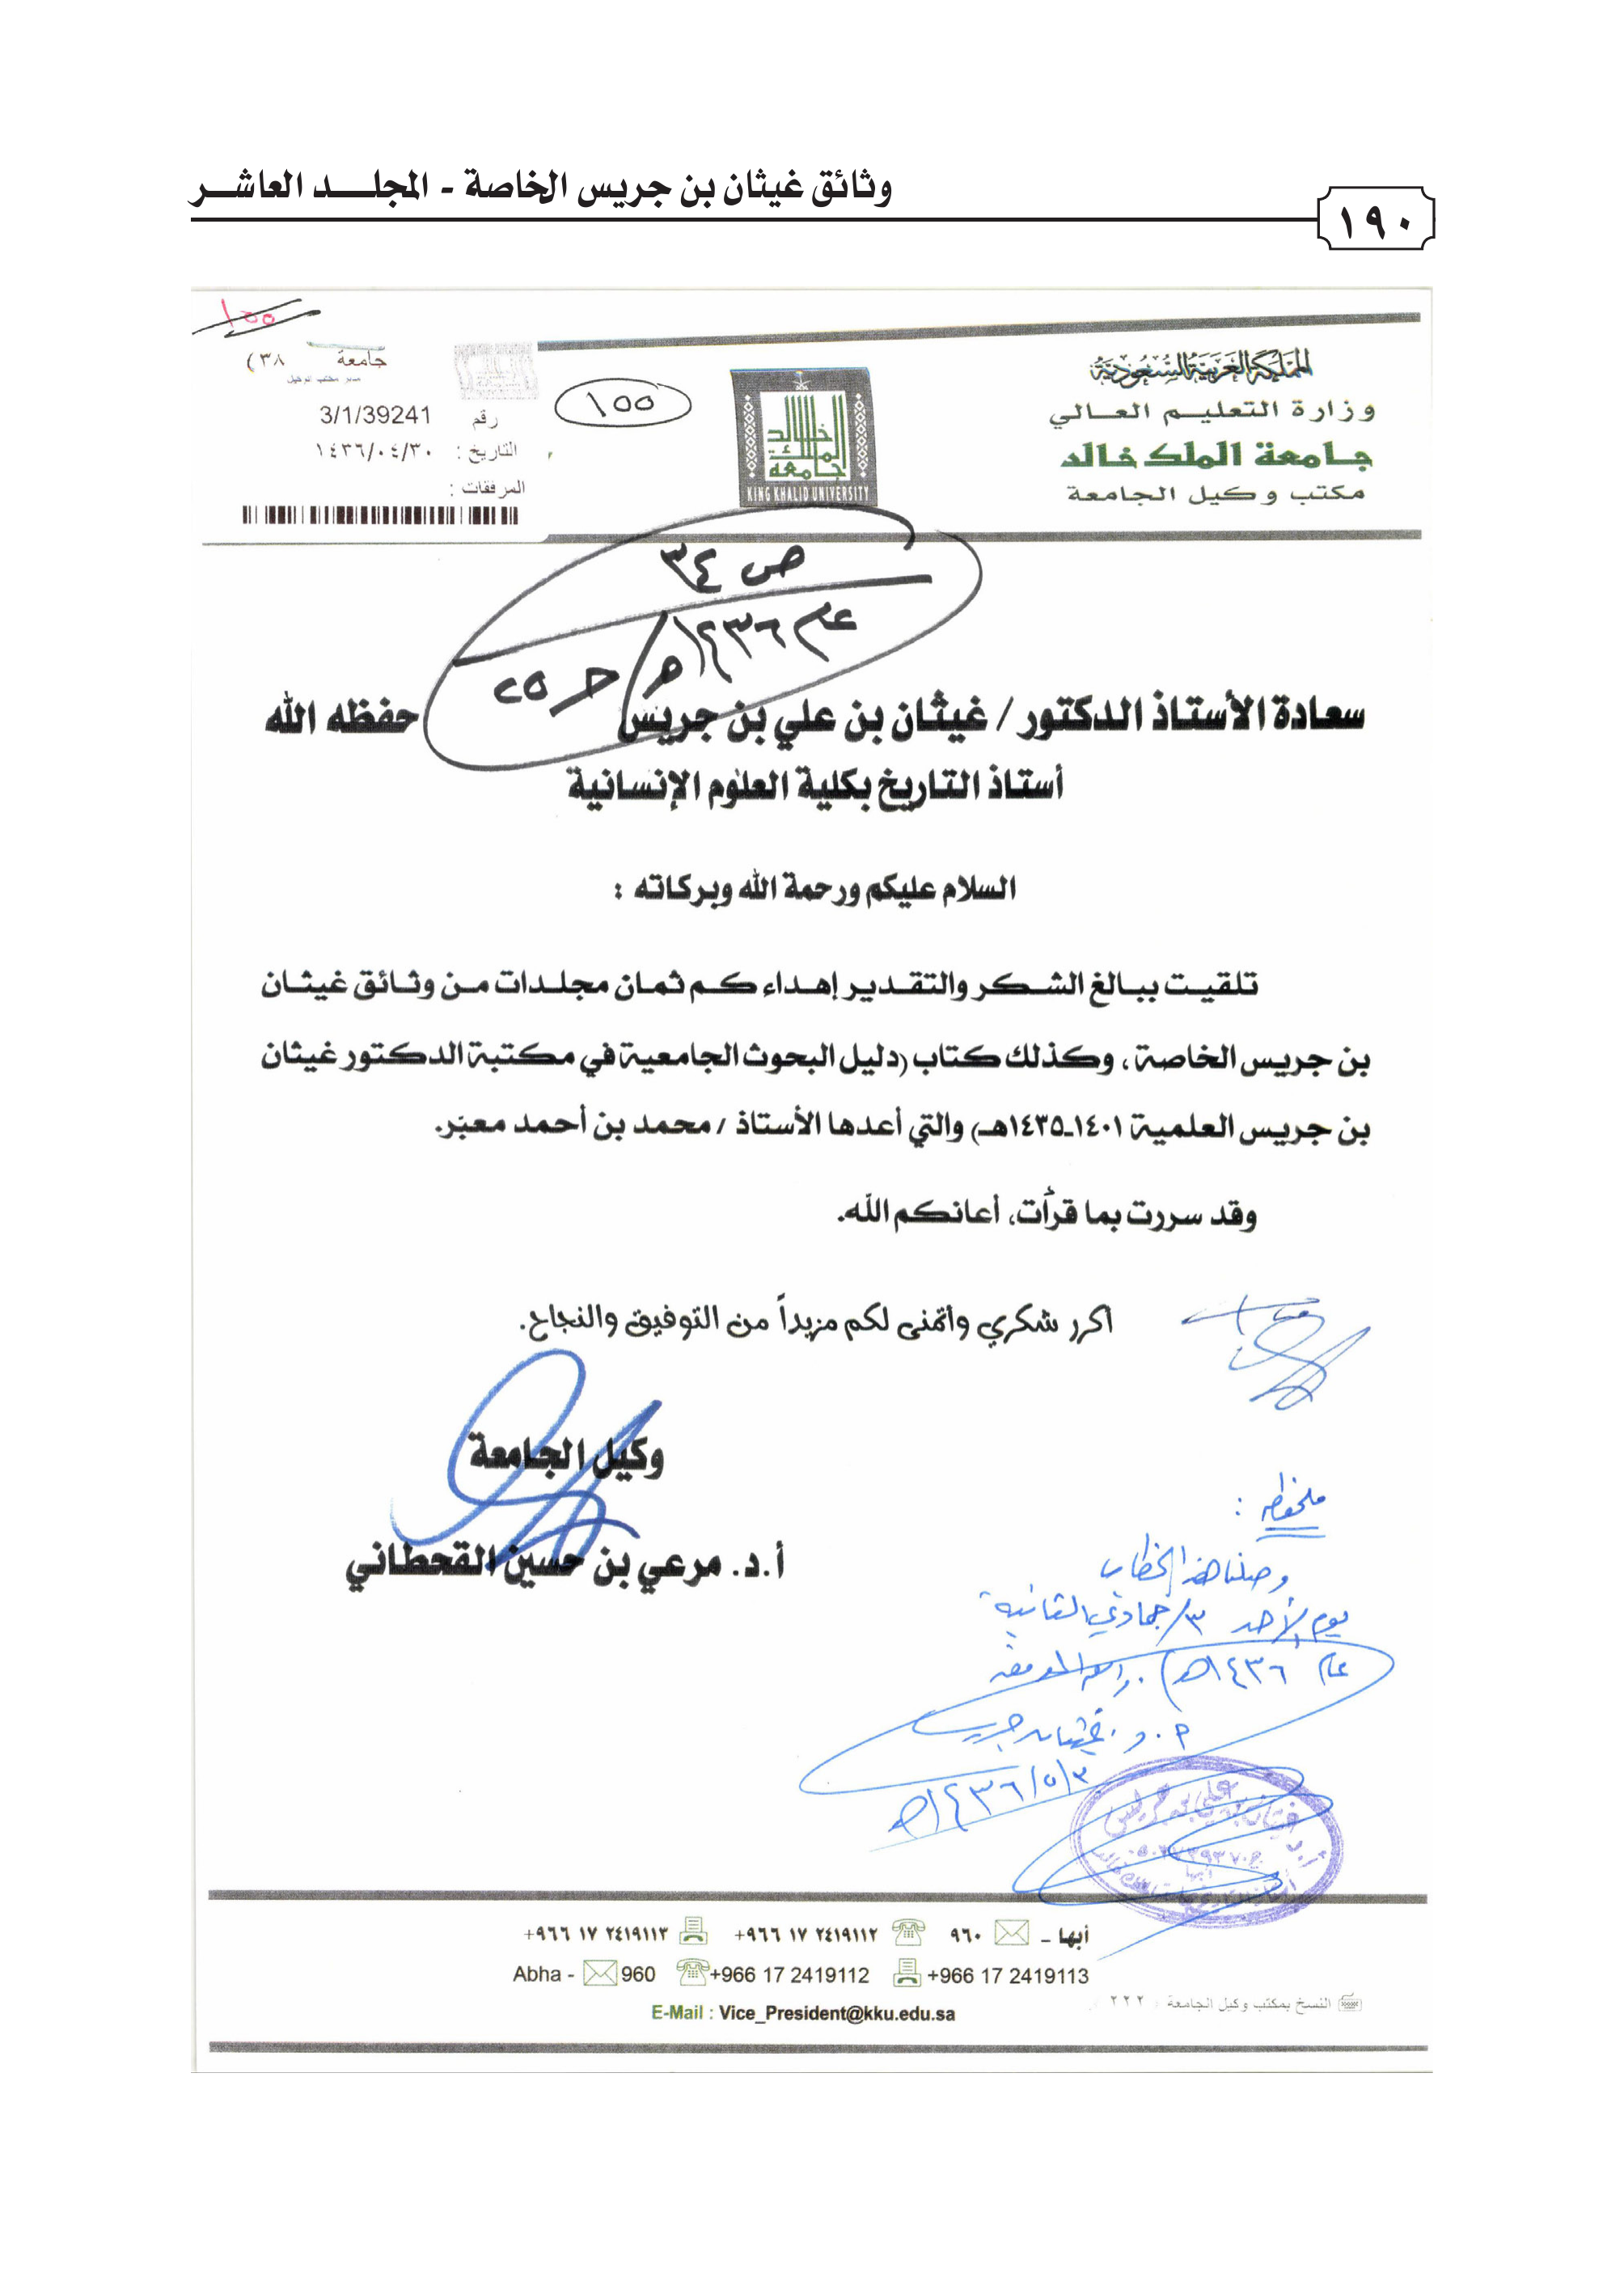 وثائق غيثان بن جريس الخاصة - المجلد العاشر
١٩٠
١٥٥
المملكة العربية السعودية
وزارة التعليم العالي
جامعة الملك خالد
مكتب وكيل الجامعة
جامعة الملك خالد
KING KHALID UNIVERSITY
١٥٥
جامعة (٣٨
رقم 3/1/39241
التاريخ : ١٤٣٦/٠٤/٣٠
المرفقات :
ص ٣٤
عام ١٤٣٦هـ / حـ ٢٥
سعادة الأستاذ الدكتور / غيثان بن علي بن جريس حفظه الله
أستاذ التاريخ بكلية العلوم الإنسانية
السلام عليكم ورحمة الله وبركاته :
تلقيت ببالغ الشكر والتقدير إهداءكم ثمان مجلدات من وثائق غيثان
بن جريس الخاصة، وكذلك كتاب (دليل البحوث الجامعية في مكتبة الدكتور غيثان
بن جريس العلمية ١٤٠١-١٤٣٥هـ) والتي أعدها الأستاذ / محمد بن أحمد معبّر.
وقد سررت بما قرأت، أعانكم الله.
اكرر شكري وأتمنى لكم مزيداً من التوفيق والنجاح.
وكيل الجامعة
أ.د. مرعي بن حسين القحطاني
ملحوظة :
وصلنا هذا الخطاب
يوم الأحد ٣/جمادى الثانية
عام ١٤٣٦هـ). والله الموفق
أ.د. غيثان جريس
١٤٣٦/٥/٣هـ
غيثان بن علي بن جريس
أبها
أبها - ٩٦٠ +٩٦٦ ١٧ ٢٤١٩١١٢ +٩٦٦ ١٧ ٢٤١٩١١٣
Abha - 960 +966 17 2419112 +966 17 2419113
E-Mail : Vice_President@kku.edu.sa
النسخ بمكتب وكيل الجامعة ( ٢٢٢ )